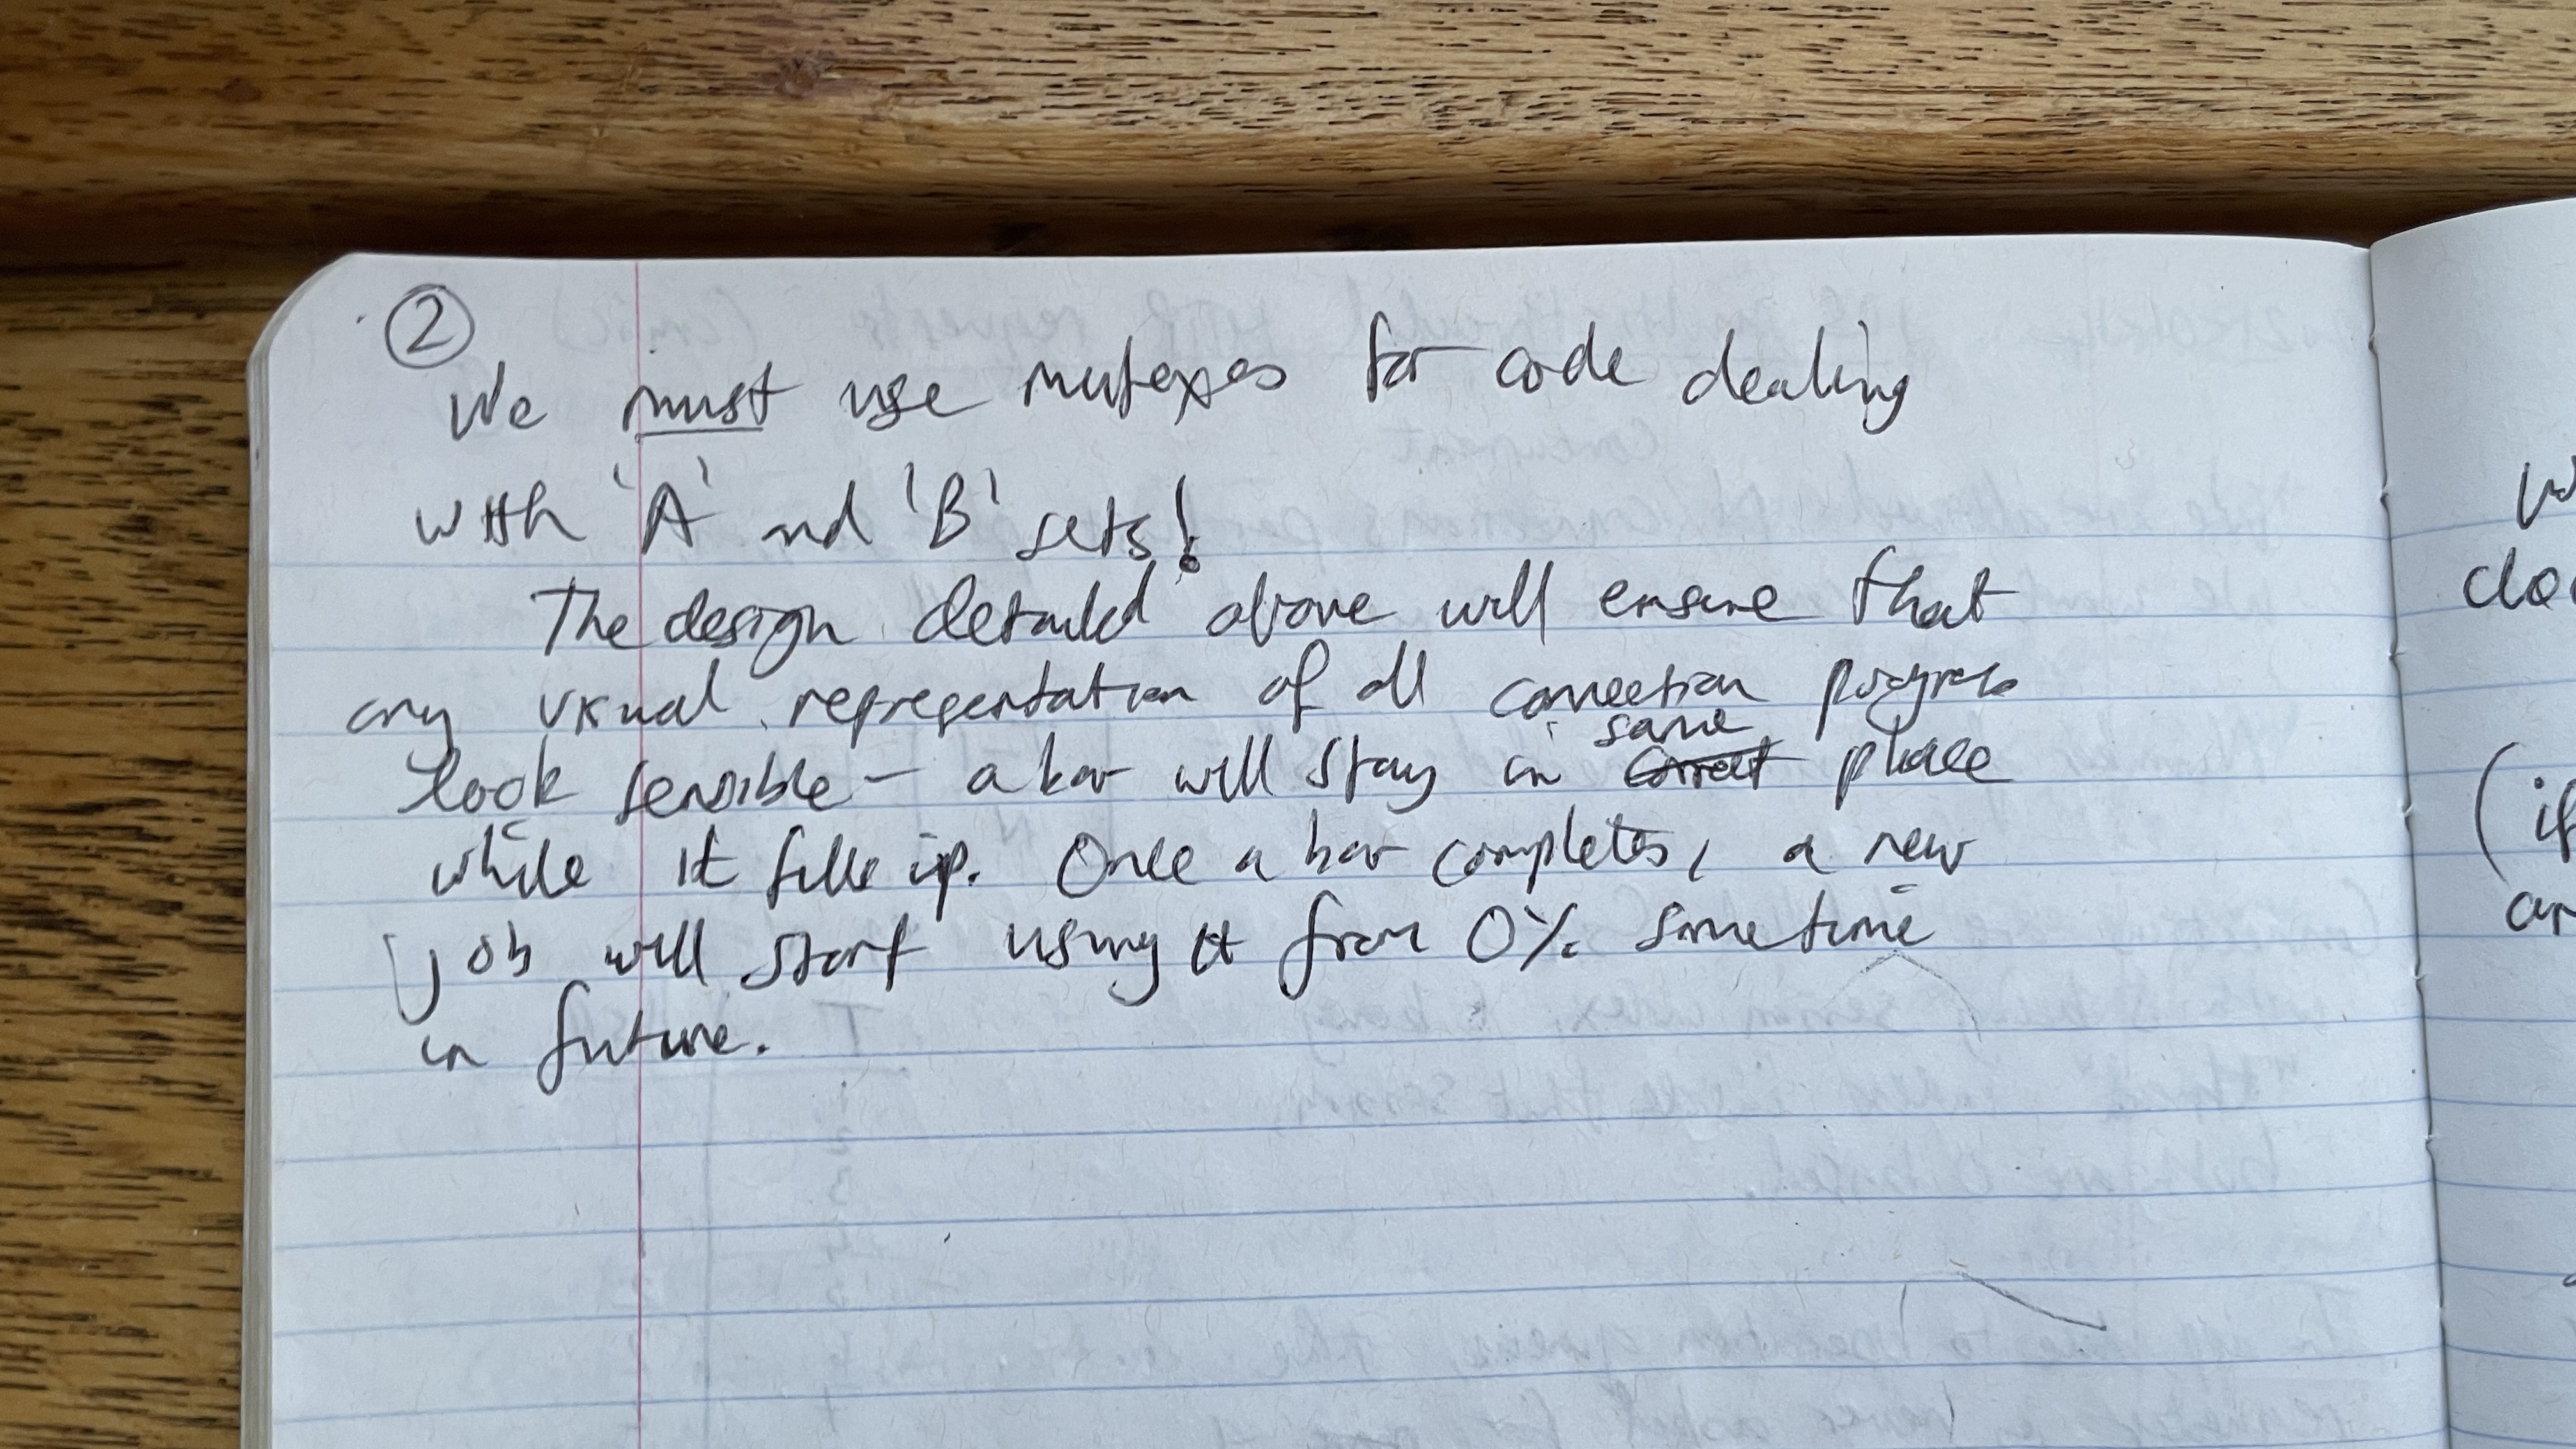 ②
We must use mutexes for code dealing
with 'A' and 'B' sets!
The design detailed above will ensure that
any visual representation of all connection progress
look sensible – a bar will stay in same ~~correct~~ place
while it fills up. Once a bar completes, a new
job will start using it from 0% sometime
in future.
W
clo
(if
an